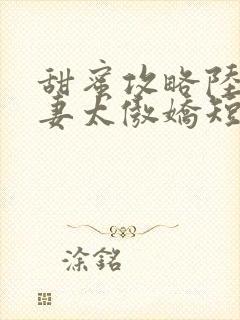 甜蜜攻略陸
妻太傲嬌短
涂銘